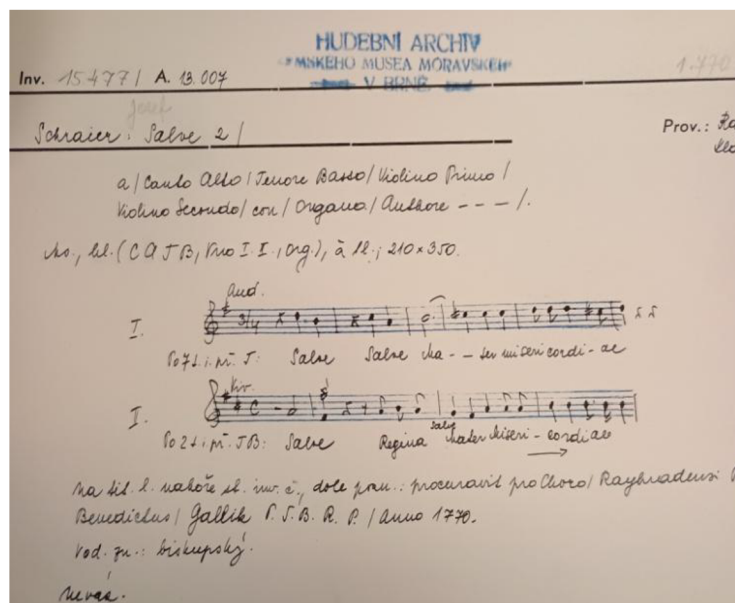 HUDEBNÍ ARCHIV
MSKÉHO MUSEA MORAVSKÉH
V BRNĚ
Inv. 15.477 / A. 13.007
1.770
Josef
Schraier: Salve 2 /
Prov.: Ra
a / Canto Alto / Tenore Basso / Violino Primo /
Violino Secondo / con / Organo / Authore - - - /.
(C A T B, Vno I. I., Org.), à 1l.; 210 × 350.
And.
I.
Po 7 t. i. př. T: Salve Salve Ma - - ter misericordi - ae
Viv.
I.
Po 2 t. i. př. TB: Salve Regina salve Mater Miseri - cordiae
Na tit. l. nahoře st. inv. č., dole pozn.: procuravit pro Choro / Rayhradensi
Benedictus / Gallik P. T. B. R. P. / Anno 1770.
Vod. zn.: biskupský.